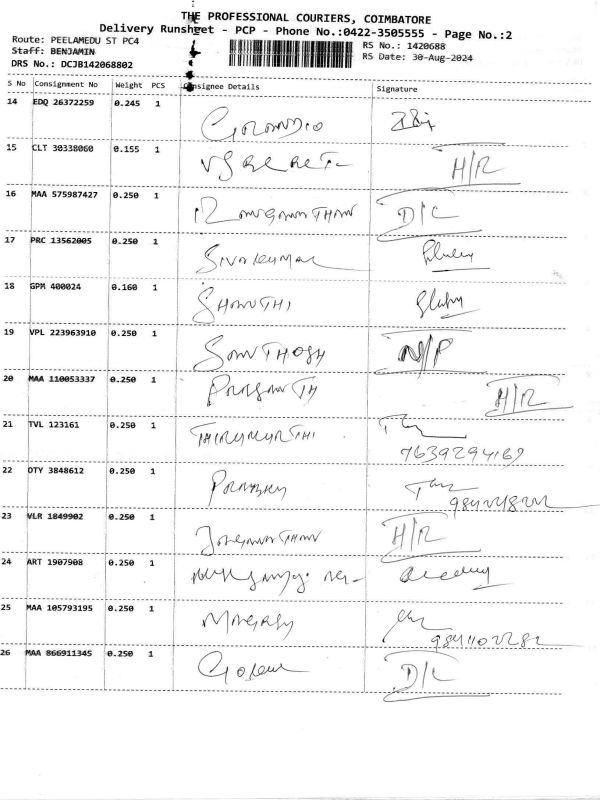 THE PROFESSIONAL COURIERS, COIMBATORE
Delivery Runsheet - PCP - Phone No.:0422-3505555 - Page No.:2
Route: PEELAMEDU ST PC4
RS No.: 1420688
Staff: BENJAMIN
RS Date: 30-Aug-2024
DRS No.: DCJB142068802
S No Consignment No Weight PCS Consignee Details Signature
14 EDQ 26372259 0.245 1
15 CLT 30338060 0.155 1 H/R
16 MAA 575987427 0.250 1 D/C
17 PRC 13562005 0.250 1 Sivakumar
18 GPM 400024 0.160 1 SHANTHI
19 VPL 223963910 0.250 1 SANTHOSH N/P
20 MAA 110053337 0.250 1 PRASANTH H/R
21 TVL 123161 0.250 1 THIRUMURTHI
7639294169
22 OTY 3848612 0.250 1 PRABHU
23 VLR 1849902 0.250 1 H/R
24 ART 1907908 0.250 1
25 MAA 105793195 0.250 1
26 MAA 866911345 0.250 1 D/L